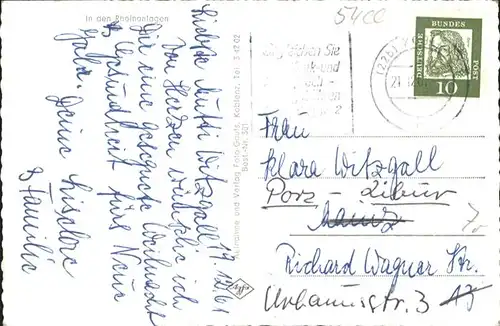 In den Rheinanlagen
19.12.61
Liebste Mutti Witzgall!
Von Herzen wünsche ich
Dir eine gesegnete Weihnacht
u. Gesundheit fürs Neue
Jahr. Deine Liselore
& Familie
Aufnahme und Verlag Foto-Gauls, Koblenz, Tel. 3 42 02
Best.-Nr. 521
54cc
DEUTSCHE BUNDESPOST
10
Frau
Klara Witzgall
Porz - Libur
Mainz
Richard Wagner Str.
Urbanusstr. 3